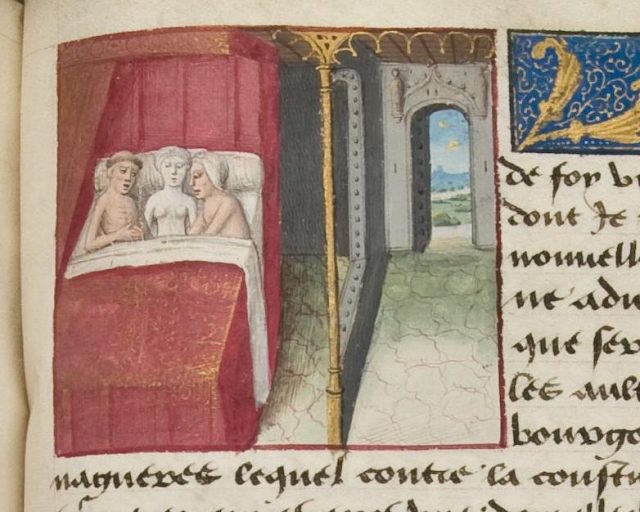 de foy
dont Je
nouuell
ne adu
que ser
les ault
bourgo
nagueres lequel conte la coustu